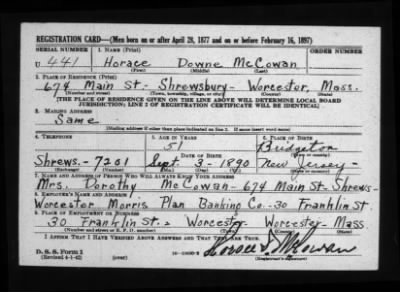 REGISTRATION CARD—(Men born on or after April 28, 1877 and on or before February 16, 1897)
SERIAL NUMBER 1. NAME (Print) ORDER NUMBER
U 441 Horace Downe McCowan
(First) (Middle) (Last)
2. PLACE OF RESIDENCE (Print)
674 Main St.- Shrewsbury- Worcester, Mass.
(Number and street) (Town, township, village, or city) (County) (State)
[THE PLACE OF RESIDENCE GIVEN ON THE LINE ABOVE WILL DETERMINE LOCAL BOARD
JURISDICTION; LINE 2 OF REGISTRATION CERTIFICATE WILL BE IDENTICAL]
3. MAILING ADDRESS
Same
[Mailing address if other than place indicated on line 2. If same insert word same]
4. TELEPHONE 5. AGE IN YEARS 6. PLACE OF BIRTH
51 Bridgeton
DATE OF BIRTH (Town or county)
Shrews.-7201 Sept. 3-1890 New Jersey-
(Exchange) (Number) (Mo.) (Day) (Yr.) (State or country)
7. NAME AND ADDRESS OF PERSON WHO WILL ALWAYS KNOW YOUR ADDRESS
Mrs. Dorothy McCowan-674 Main St-Shrews-
8. EMPLOYER'S NAME AND ADDRESS
Worcester Morris Plan Banking Co.-30 Franklin St.
9. PLACE OF EMPLOYMENT OR BUSINESS
30 Franklin St., Worcester Worcester- Mass
(Number and street or R. F. D. number) (Town) (County) (State)
I AFFIRM THAT I HAVE VERIFIED ABOVE ANSWERS AND THAT THEY ARE TRUE.
D. S. S. Form 1
(Revised 4-1-42) (over) Horace D. McCowan
(Registrant's signature)